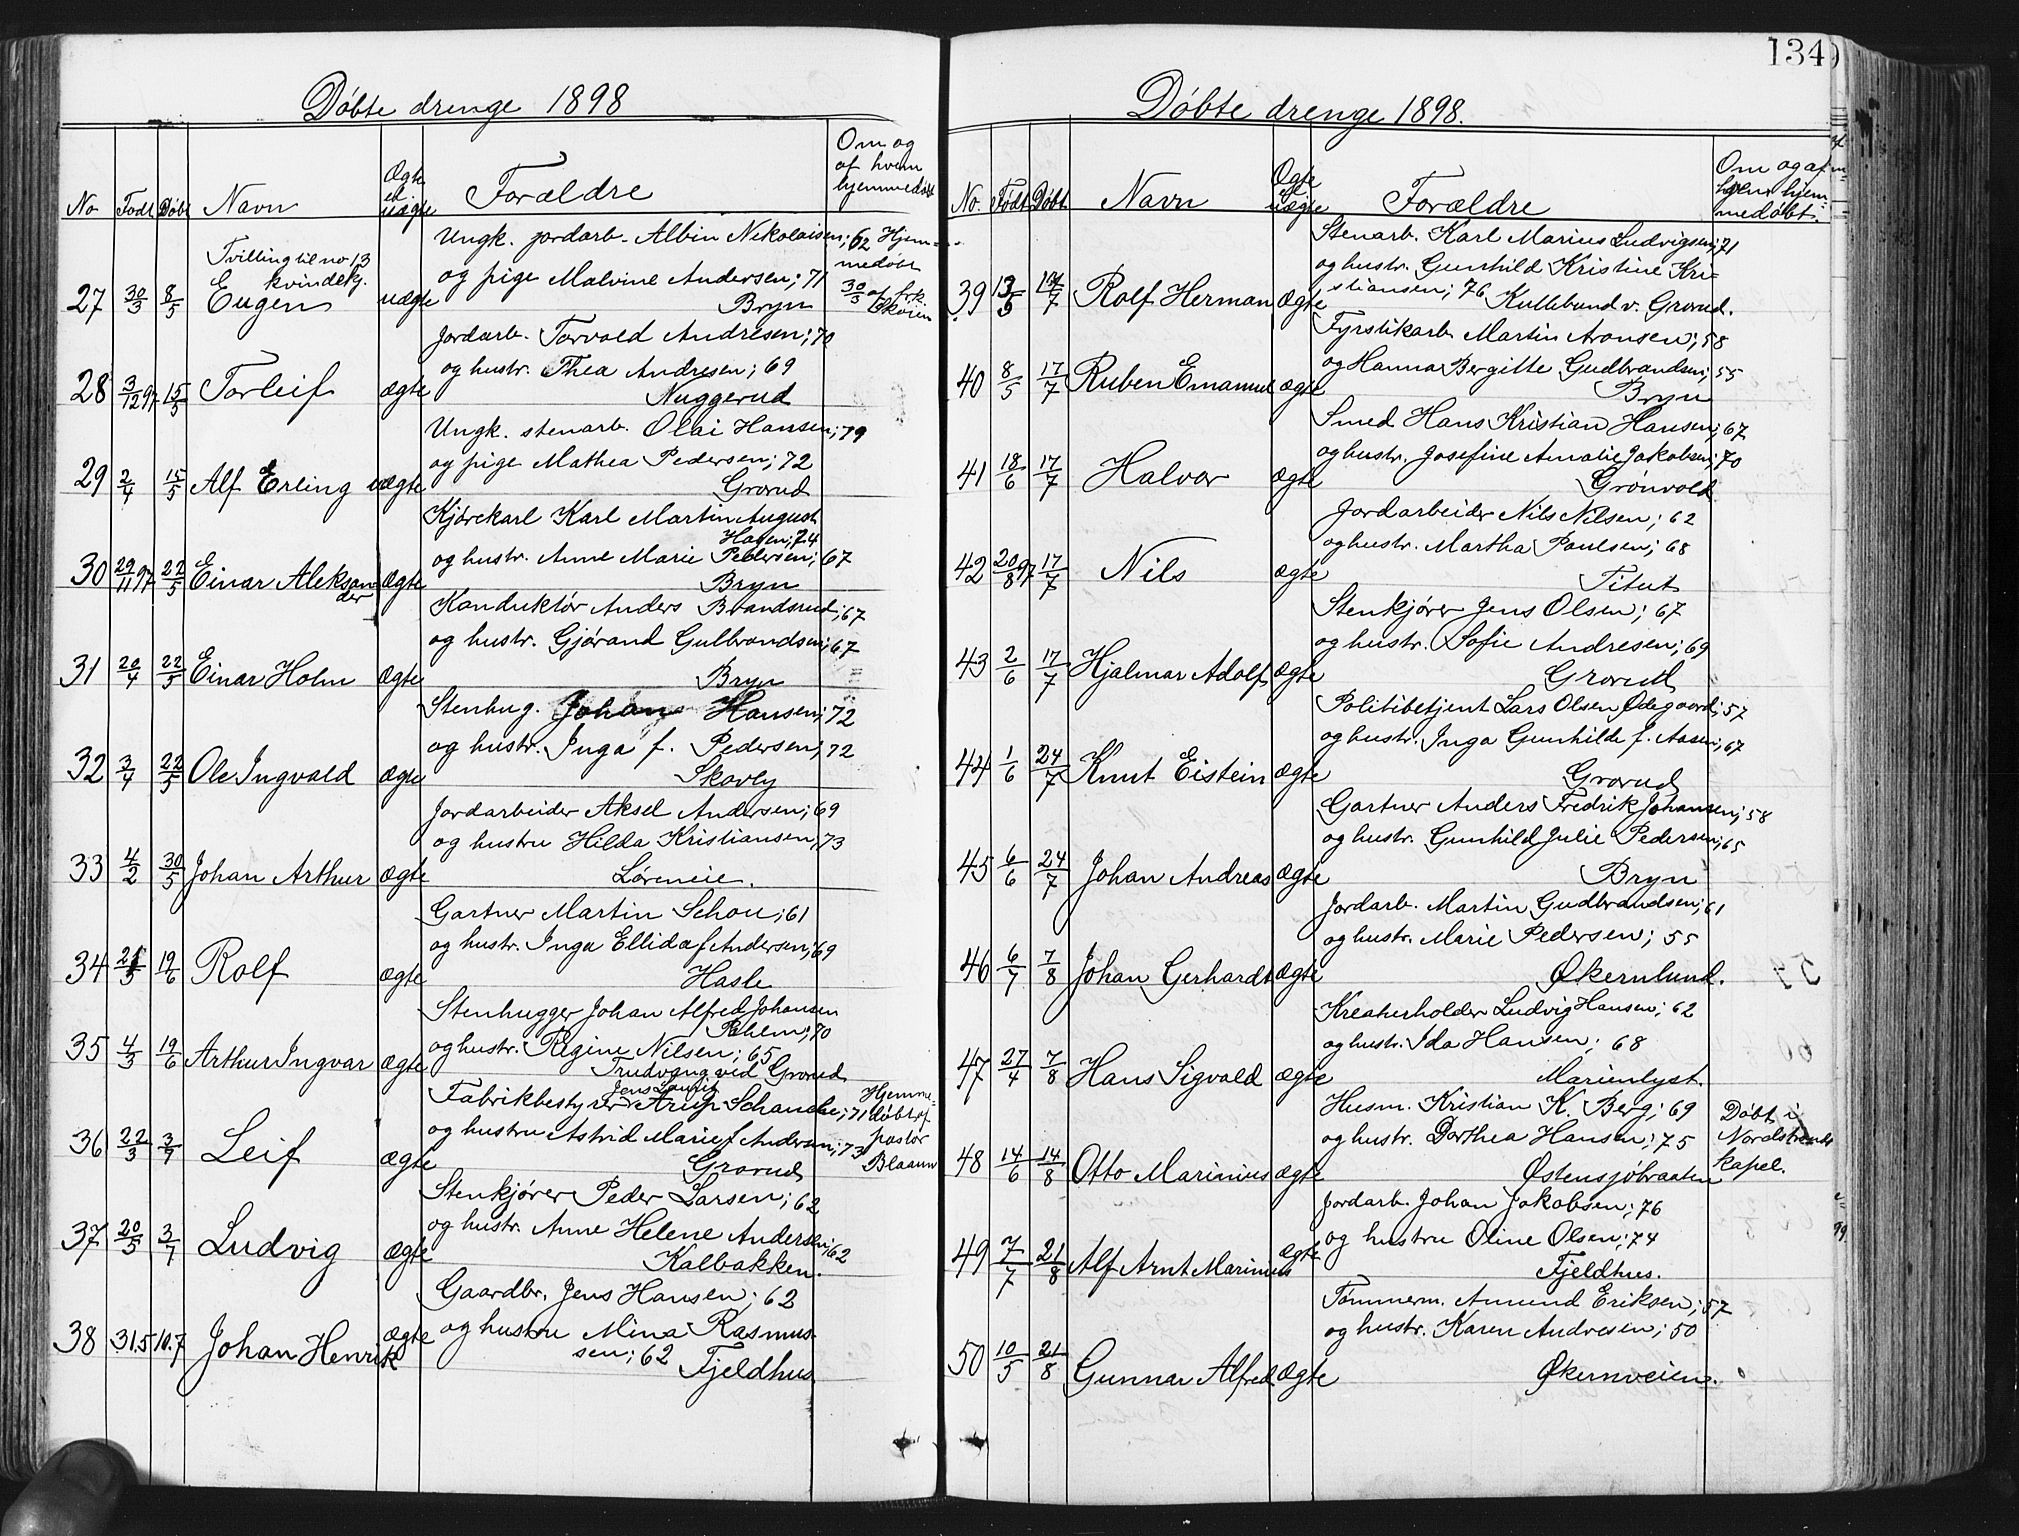 134
Døbte drenge 1898
No Født Døbt Navn Ægte el uægte Forældre Om og af hvem hjemmedøbt
Tvilling til no 13 kvindekj.
27 30/3 8/5 Eugen uægte
Ungk. jordarb. Albin Nikolaisen; 62
og pige Malvine Andersen; 71
Bryn
Hjemmedøbt 30/3 af frk.
28 3/12 97 15/5 Torleif ægte
Jordarb. Torvald Andresen; 70
og hustr. Thea Andresen; 69
Nuggerud
29 2/4 15/5 Alf Erling uægte
Ungk. stenarb. Olai Hansen; 79
og pige Mathea Pedersen; 72
Grorud
30 29/11 97 22/5 Einar Aleksander ægte
Kjørekarl Karl Martin August
Hagen; 74
og hustr. Anne Marie Pedersen; 67
Bryn
31 20/4 22/5 Einar Holm ægte
Konduktør Anders Brandsrud; 67
og hustr. Gjørand Gulbrandsen; 67
Bryn
32 3/4 22/5 Ole Ingvald ægte
Stenhug. Johan Hansen; 72
og hustr. Inga f. Pedersen; 72
Skovly
33 4/2 30/5 Johan Arthur ægte
Jordarbeider Aksel Andersen; 69
og hustru Hilda Kristiansen; 73
Løreneie.
34 21/3 19/6 Rolf ægte
Gartner Martin Schou; 61
og hustr. Inga Ellida f Andersen; 69
Hasle
35 4/3 19/6 Arthur Ingvar ægte
Stenhugger Johan Alfred Johansen
70
og hustr. Regine Nilsen; 65
Trudvang ved Grorud
36 22/3 3/7 Leif ægte
Jens Lauritz
Fabrikbestyrer Arup Schanche; 71
og hustru Astrid Marie f Andersen; 73
Grorud
Hjemmedøbt af pastor Blaauw
37 20/5 3/7 Ludvig ægte
Stenkjører Peder Larsen; 62
og hustr. Anne Helene Andersen; 62
Kalbakken.
38 31.5 10.7 Johan Henrik ægte
Gaardbr. Jens Hansen; 62
og hustru Mina Rasmus-
sen; 62 Fjeldhus
Døbte drenge 1898.
No. Født Døbt Navn Ægte el uægte Forældre Om og af hvem hjemmedøbt.
39 13/5 17/7 Rolf Herman ægte
Stenarb. Karl Marius Ludvigsen; 71
og hustr. Gunhild Kristine Kri-
stiansen; 76 Kullebund v. Grorud.
40 8/5 17/7 Ruben Emanuel ægte
Fyrstikarb. Martin Aronsen; 58
og Hanna Bergitte Gudbrandsen; 55
Bryn
41 18/6 17/7 Halvor ægte
Smed Hans Kristian Hansen; 67
og hustr. Josefine Amalie Jakobsen; 70
Grønvold
42 20/8 97 17/7 Nils ægte
Jordarbeider Nils Nilsen; 62
og hustr. Martha Paulsen; 68
Titut
43 2/6 17/7 Hjalmar Adolf ægte
Stenkjører Jens Olsen; 67
og hustr. Sofie Andresen; 69
Grorud
44 1/6 24/7 Knut Eistein ægte
Politibetjent Lars Olsen Ødegaard; 57
og hustr. Inga Gunhilde f. Aasen; 67
Grorud
45 6/6 24/7 Johan Andreas ægte
Gartner Anders Fredrik Johansen; 58
og hustr. Gunhild Julie Pedersen; 65
Bryn
46 6/7 7/8 Johan Gerhardt ægte
Jordarb. Martin Gudbrandsen; 61
og hustr. Marie Pedersen; 55
Økernlund.
47 27/4 7/8 Hans Sigvald ægte
Kreaturholder Ludvig Hansen; 62
og hustr. Ida Hansen; 68
Marienlyst.
48 14/6 14/8 Otto Marinius ægte
Husm. Kristian K. Berg; 69
og hustr. Dorthea Hansen; 75
Østensjøbraaten
Døbt i Nordstrands kapel.
49 7/7 21/8 Alf Arnt Marinius ægte
Jordarb. Johan Jakobsen; 76
og hustru Oline Olsen; 74
Fjeldhus.
50 10/5 21/8 Gunnar Alfred ægte
Tømmerm. Amund Eriksen; 57
og hustr. Karen Andresen; 50
Økernveien.